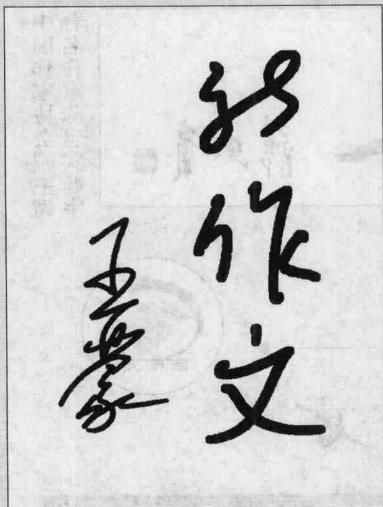 新作文
王蒙